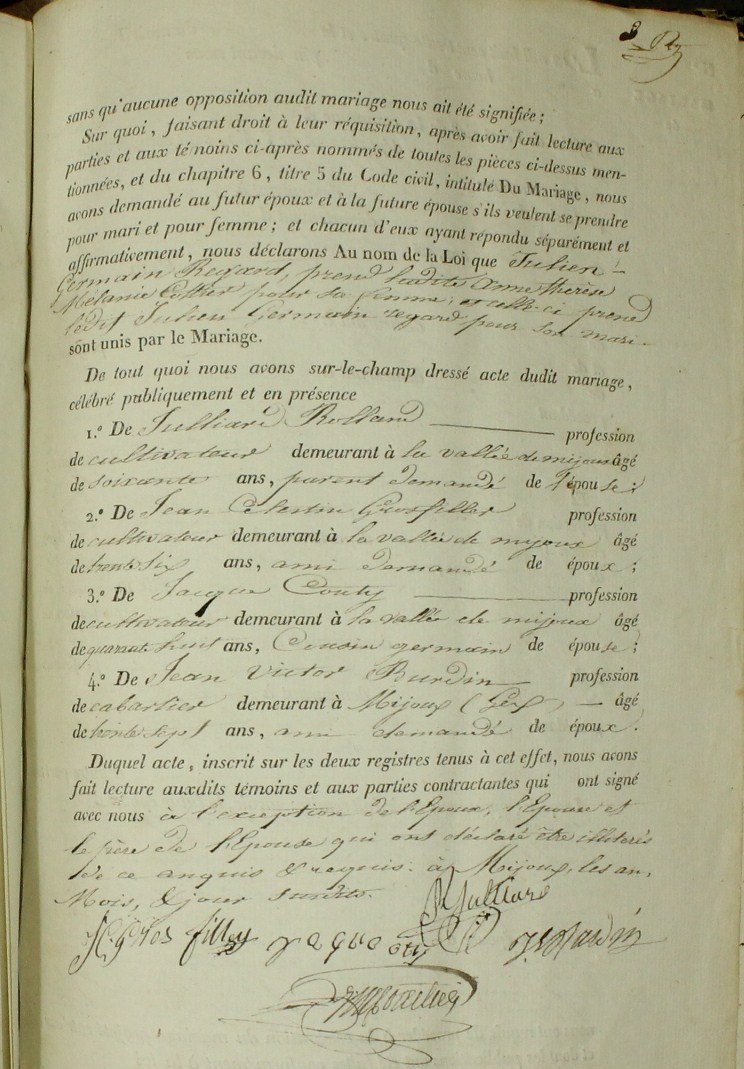 8
sans qu'aucune opposition audit mariage nous ait été signifiée ;
Sur quoi, faisant droit à leur réquisition, après avoir fait lecture aux
parties et aux témoins ci-après nommés de toutes les pièces ci-dessus men-
tionnées, et du chapitre 6, titre 5 du Code civil, intitulé Du Mariage, nous
avons demandé au futur époux et à la future épouse s'ils veulent se prendre
pour mari et pour femme ; et chacun d'eux ayant répondu séparément et
affirmativement, nous déclarons Au nom de la Loi que Julien
Germain Regard, prend ladite Anne Thérèse
Mélanie pour sa femme, et celle-ci prend
ledit Julien Germain regard pour son mari.
sont unis par le Mariage.
De tout quoi nous avons sur-le-champ dressé acte dudit mariage,
célébré publiquement et en présence
1.º De Julliard Rolland profession
de cultivateur demeurant à la vallée de mijoux âgé
de soixante ans, parent demandé de l'épouse ;
2.º De Jean Célestin Grosfilley profession
de cultivateur demeurant à la vallée de mijoux âgé
de trente six ans, ami demandé de époux ;
3.º De Jacque Couty profession
de cultivateur demeurant à la vallée de mijoux âgé
de quarante huit ans, Cousin germain de épouse ;
4.º De Jean Victor Burdin profession
de cabartier demeurant à Mijoux (Gex) âgé
de trente sept ans, ami demandé de époux.
Duquel acte, inscrit sur les deux registres tenus à cet effet, nous avons
fait lecture auxdits témoins et aux parties contractantes qui ont signé
avec nous à l'exception de l'Epoux, l'Epouse et
le père de l'Epouse qui ont déclaré être illiterés
de ce anquis & requis. à Mijoux, les an,
Mois, & jour susdits.
R Julliard
J C Gros filley Jaque Couty J V Burdin